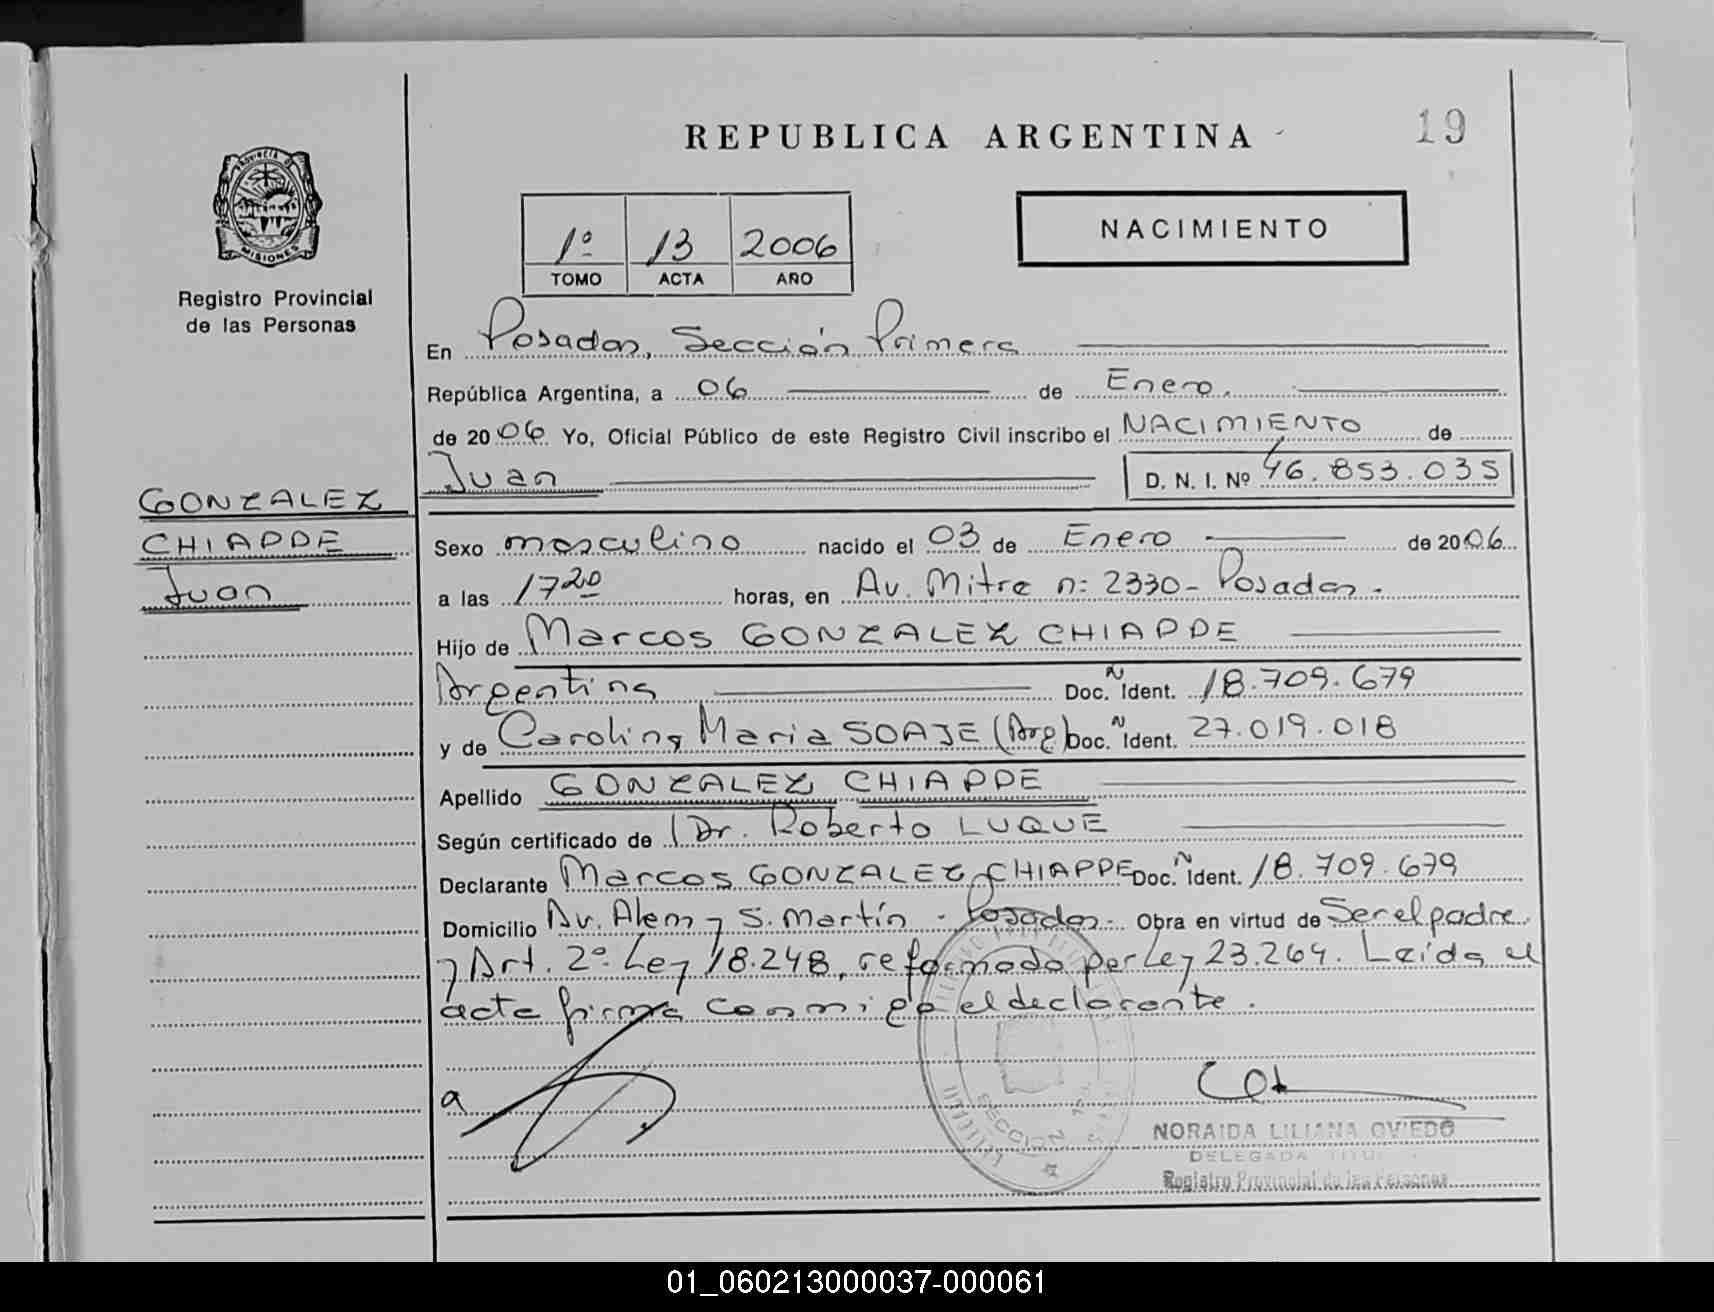 REPUBLICA ARGENTINA
19
PROVINCIA DE
MISIONES
Registro Provincial
de las Personas
1º 13 2006
TOMO ACTA AÑO
NACIMIENTO
En Posadas, Sección Primera
República Argentina, a 06 de Enero.
de 2006 Yo, Oficial Público de este Registro Civil inscribo el NACIMIENTO de
Juan D. N. I. Nº 46.853.035
GONZALEZ
CHIAPPE
Juan
Sexo masculino nacido el 03 de Enero de 2006
a las 17 20 horas, en Av. Mitre n: 2330 - Posadas.
Hijo de Marcos GONZALEZ CHIAPPE
Argentina Doc. Ñ Ident. 18.709.679
y de Carolina Maria SOAJE (Arg) Doc. Ñ Ident. 27.019.018
Apellido GONZALEZ CHIAPPE
Según certificado de Dr. Roberto LUQUE
Declarante Marcos GONZALEZ CHIAPPE Doc. Ñ Ident. 18.709.679
Domicilio Av. Alem y S. Martín - Posadas - Obra en virtud de Ser el padre
y Art. 2º Ley 18.248, reformado por Ley 23.264. Leída el
acta firma conmigo el declarante.
SECCION 1ª
NORAIDA LILIANA OVIEDO
DELEGADA
Registro Provincial de las Personas
01_060213000037-000061